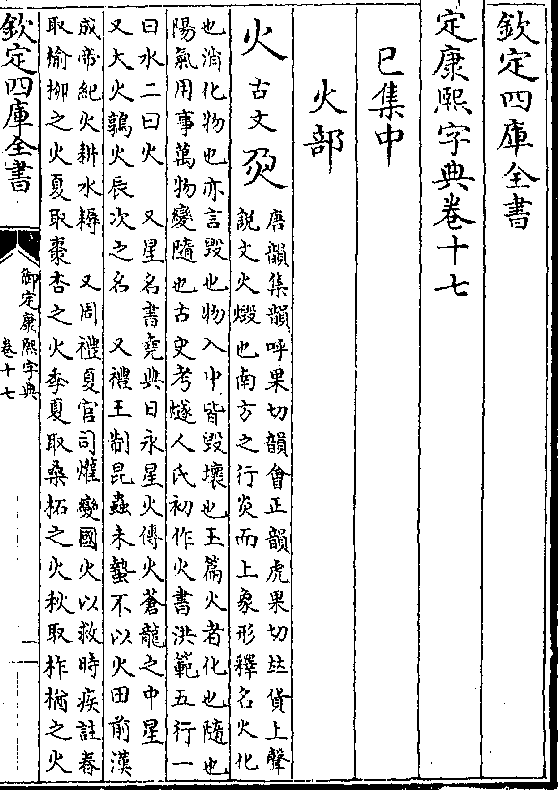 欽定四庫全書
定康熙字典卷十七
巳集中
火部
火古文𤆄唐韻集韻呼果切韻會正韻虎果切𠀤貨上聲
說文火燬也南方之行炎而上象形釋名火化
也消化物也亦言毀也物入中皆毀壞也玉篇火者化也隨也
陽氣用事萬物變隨也古史考燧人氏初作火書洪範五行一
曰水二曰火 又星名書堯典日永星火傳火蒼龍之中星
又大火鶉火辰次之名 又禮王制昆蟲未蟄不以火田前漢
成帝紀火耕水耨 又周禮夏官司爟變國火以救時疾註春
取榆柳之火夏取棗杏之火季夏取桑柘之火秋取柞楢之火
欽定四庫全書
御定康熙字典
卷十七
一